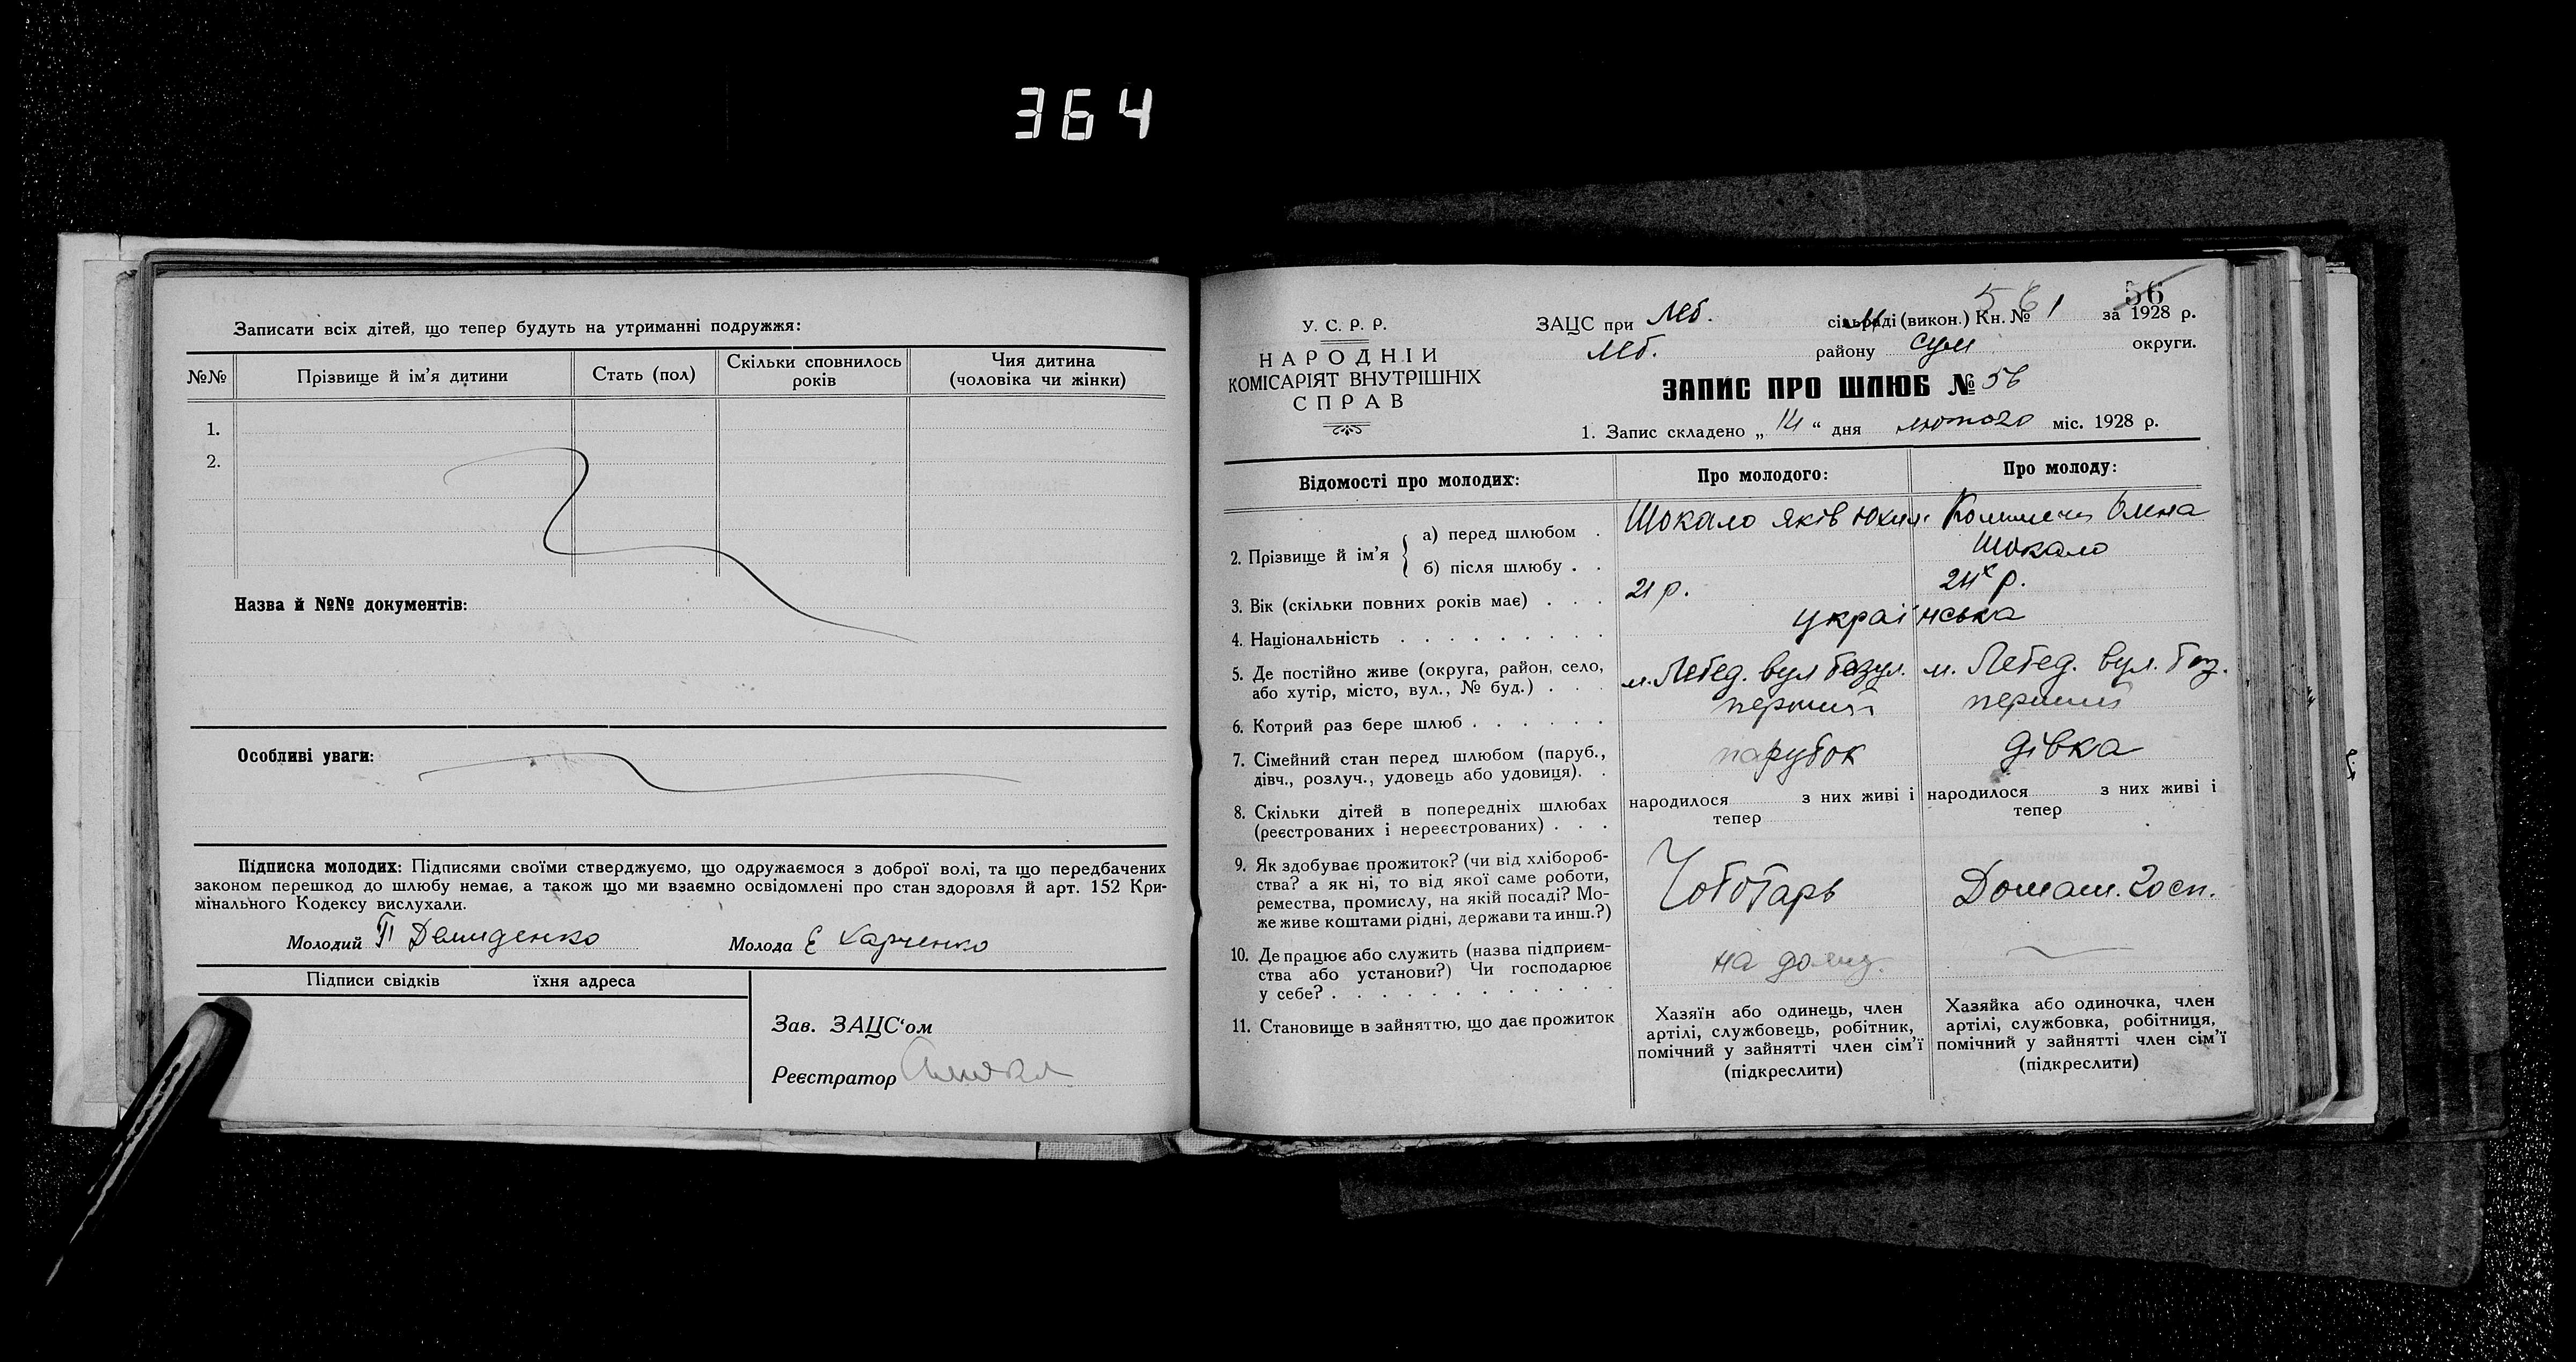 364
Записати всіх дітей, що тепер будуть на утриманні подружжя:
№№ Прізвище й ім'я дитини Стать (пол) Скільки сповнилось років Чия дитина (чоловіка чи жінки)
1.
2.
Назва й №№ документів:
Особливі уваги:
Підписка молодих: Підписями своїми стверджуємо, що одружаємося з доброї волі, та що передбачених
законом перешкод до шлюбу немає, а також що ми взаємно освідомлені про стан здоровля й арт. 152 Кри-
мінального Кодексу вислухали.
Молодий П Демиденко Молода Є Харченко
Підписи свідків їхня адреса
Зав. ЗАЦС'ом
Реєстратор
56
У. С. Р. Р.
НАРОДНІЙ
КОМІСАРІЯТ ВНУТРІШНІХ
СПРАВ
ЗАЦС при Леб. сільраді (викон.) Кн. № 1 за 1928 р.
Леб. району Сум округи.
ЗАПИС ПРО ШЛЮБ № 56
1. Запис складено „ 14 “ дня лютого міс. 1928 р.
Відомості про молодих: Про молодого: Про молоду:
2. Прізвище й ім'я { а) перед шлюбом . Шокало Яків Юхим. Олена
б) після шлюбу . . Шокало
3. Вік (скільки повних років має) . . . 21 р. 24х р.
4. Національність . . . . . . . . . українська
5. Де постійно живе (округа, район, село,
або хутір, місто, вул., № буд.) . . . м. Лебед. вул м. Лебед. вул.
6. Котрий раз бере шлюб . . . . . . перший перший
7. Сімейний стан перед шлюбом (паруб.,
дівч., розлуч., удовець або удовиця). . парубок дівка
8. Скільки дітей в попередніх шлюбах
(реєстрованих і нереєстрованих) . . . народилося з них живі і тепер народилося з них живі і тепер
9. Як здобуває прожиток? (чи від хлібороб-
ства? а як ні, то від якої саме роботи,
ремества, промислу, на якій посаді? Мо-
же живе коштами рідні, держави та инш.?) Чоботарь Домаш. госп.
10. Де працює або служить (назва підприєм-
ства або установи?) Чи господарює
у себе? . . . . . . . . . . . . на дому.
11. Становище в зайняттю, що дає прожиток
Хазяїн або одинець, член
артілі, службовець, робітник,
помічний у зайнятті член сім'ї
(підкреслити)
Хазяйка або одиночка, член
артілі, службовка, робітниця,
помічний у зайнятті член сім'ї
(підкреслити)